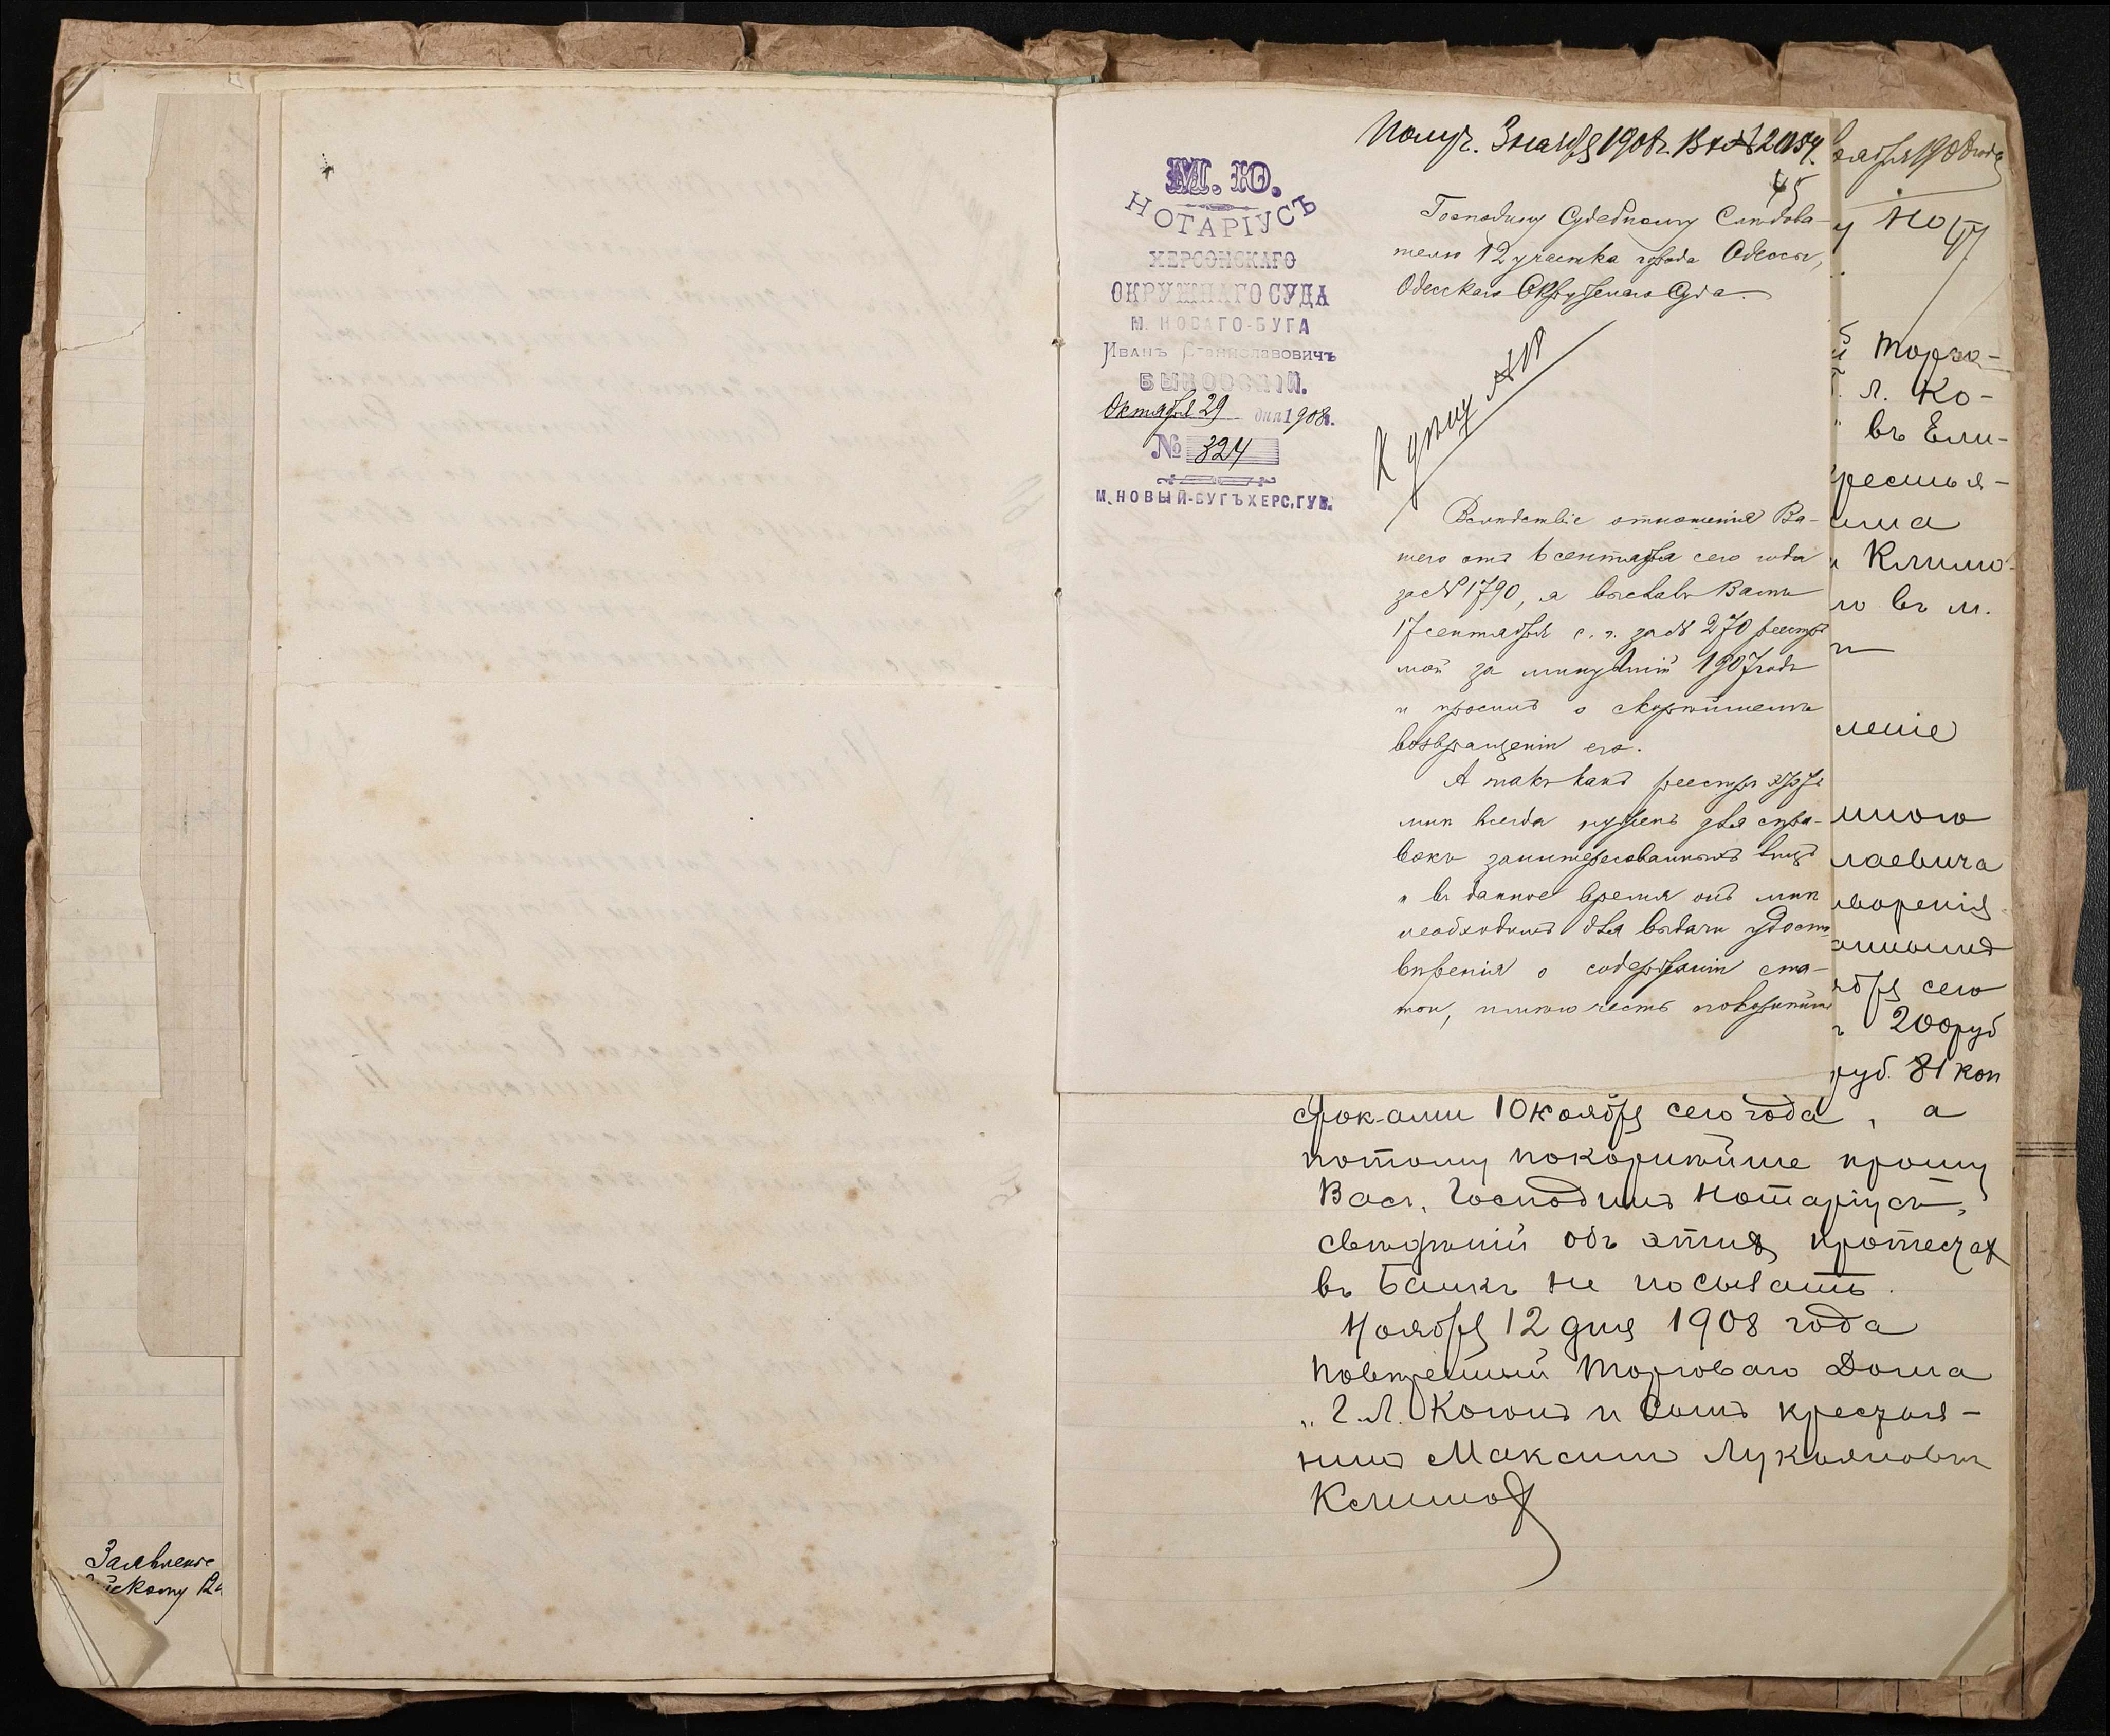 Получ. 3 ноября 1908 г. Вх. № 2054.
45
М. Ю.
НОТАРІУСЪ
ХЕРСОНСКАГО
ОКРУЖНАГО СУДА
М. НОВАГО-БУГА
Иванъ Станиславовичъ
БЫКОВСКІЙ.
Октября 29 дня 1908 г.
№ 324
М. НОВЫЙ-БУГЪ ХЕРС. ГУБ.
Господину Судебному Слѣдова-
телю 12 участка города Одессы,
Одесскаго Окружнаго Суда.
К дѣлу №
Вслѣдствіе отношенія Ва-
шего отъ 6 сентября сего года
за № 1790, я выслалъ Вамъ
17 сентября с. г. за № 270 реестръ
мой за минувшій 1907 годъ
и просилъ о скорѣйшемъ
возвращеніи его.
А такъ какъ реестръ
мнѣ всегда нуженъ для спра-
вокъ заинтересованныхъ лицъ
и въ данное время онъ мнѣ
необходимъ для выдачи удосто-
вѣренія о содержаніи ста-
тьи, имѣю честь покорнѣйше
ноября 1908 года
у Но
й Торго-
Г. Л. Ко-
въ Ели-
крестья-
Климо-
го въ м.
леніе
мною
лаевича
воренія
ября сего
200 руб
руб. 81 коп
сроками 10 ноября сего года, а
потому покорнѣйше прошу
Васъ, Господинъ Нотаріусъ,
свѣдѣній объ этихъ протестах
въ Банкъ не посылать.
Ноября 12 дня 1908 года
Повѣренный Торговаго Дома
„Г. Л. Когонъ и Сынъ крестья-
нинъ Максимъ Лукьяновъ
Климов
Заявленіе
йскому